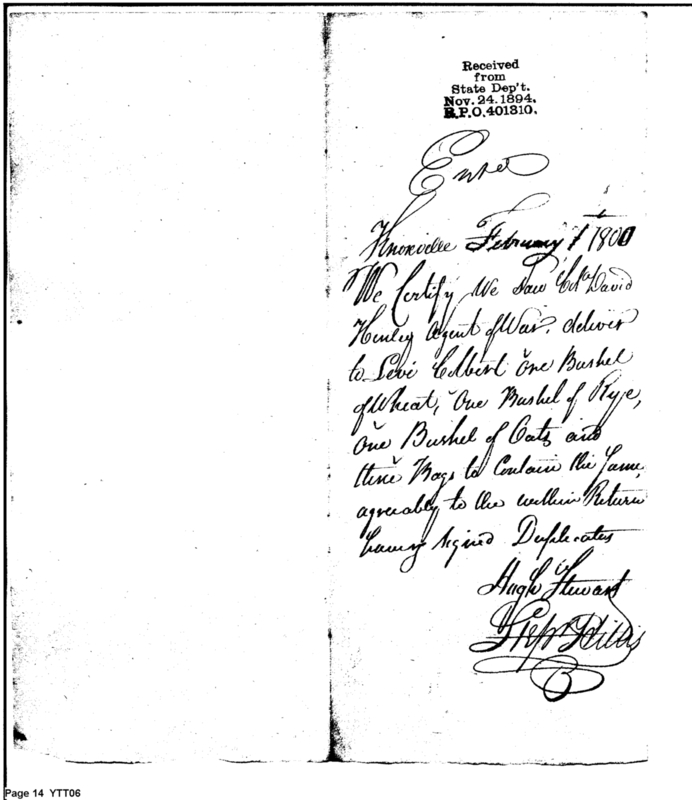 Received
from
State Dep't.
Nov. 24. 1894.
R.P.O. 401310.
Knoxville February 1st 1800
We Certify We Saw Colo David
Henley Agent of War, deliver
to Levi Colbert One Bushel
of Wheat, One Bushel of Rye,
One Bushel of Oats and
three Bags to Contain the Same,
agreeably to the within Return
having signed Duplicates
Hugh Stewart
Step Hillis
Page 14 YTT06